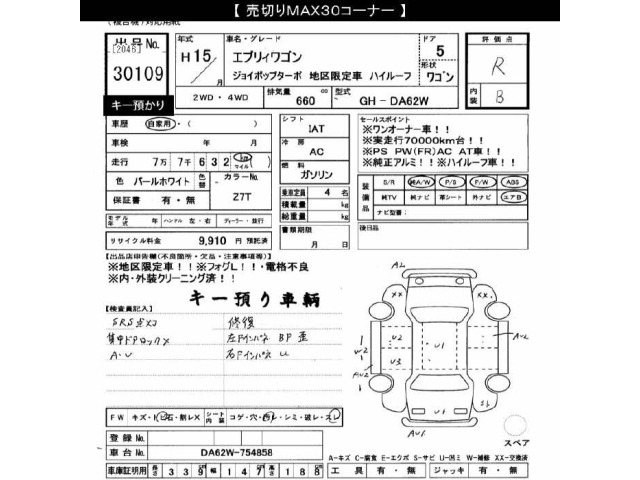 【 売切りMAX30コーナー 】
(複合機)対応用紙
出品No. [2046] 30109
年式 H15 年 月
車名・グレード エブリィワゴン
ジョイポップターボ 地区限定車 ハイルーフ
ドア 5
形状 ワゴン
評価点 R
内装 B
キー預かり
2WD・4WD 排気量 660 cc 型式 GH-DA62W
車歴 自家用・( )
車検 年 月
走行 7万 7千 632 km マイル
色 パールホワイト 色替 カラーNo. Z7T
保証書 有・無
シフト IAT
冷房 AC
燃料 ガソリン
乗車定員 4 名
積載量 kg
総重量 kg
セールスポイント
※ワンオーナー車!!
※実走行70000km台!!
※PS PW(FR)AC AT車!!
※純正アルミ!!※ハイルーフ車!!
装備品 S/R 純A/W P/S P/W ABS
純TV 純ナビ 革シート 外ナビ エアB
ナビ型番:
モデル年式 年 ハンドル 左・右 ディーラー・並行
書類期限 月 日
後日品
リサイクル料金 9,910 円 預託済
【出品店申告欄(不良箇所・欠品・注意事項等)】
※地区限定車!!※フォグL!!・電格不良
※内・外装クリーニング済!!
キー預り車輌
【検査員記入】
SRS点メコ 修復
集中ドアロックX 左Fインパネ BP 歪
A・U 右Fインパネ U
AL
XX XX
U2 U1 W2 U3 AU2 AUL
U1
AU1
スペア
FW キズ・ヒ石・割レX シート内装 コゲ・穴・切レ・シミ・破レ・スレ
登録No.
車台No. DA62W-754858
A-キズ C-腐食 E-エクボ S-サビ U-凹ミ W-補修 XX-交換済
車庫証明 長さ 339 幅 147 高さ 188 工具 有・無 ジャッキ 有・無